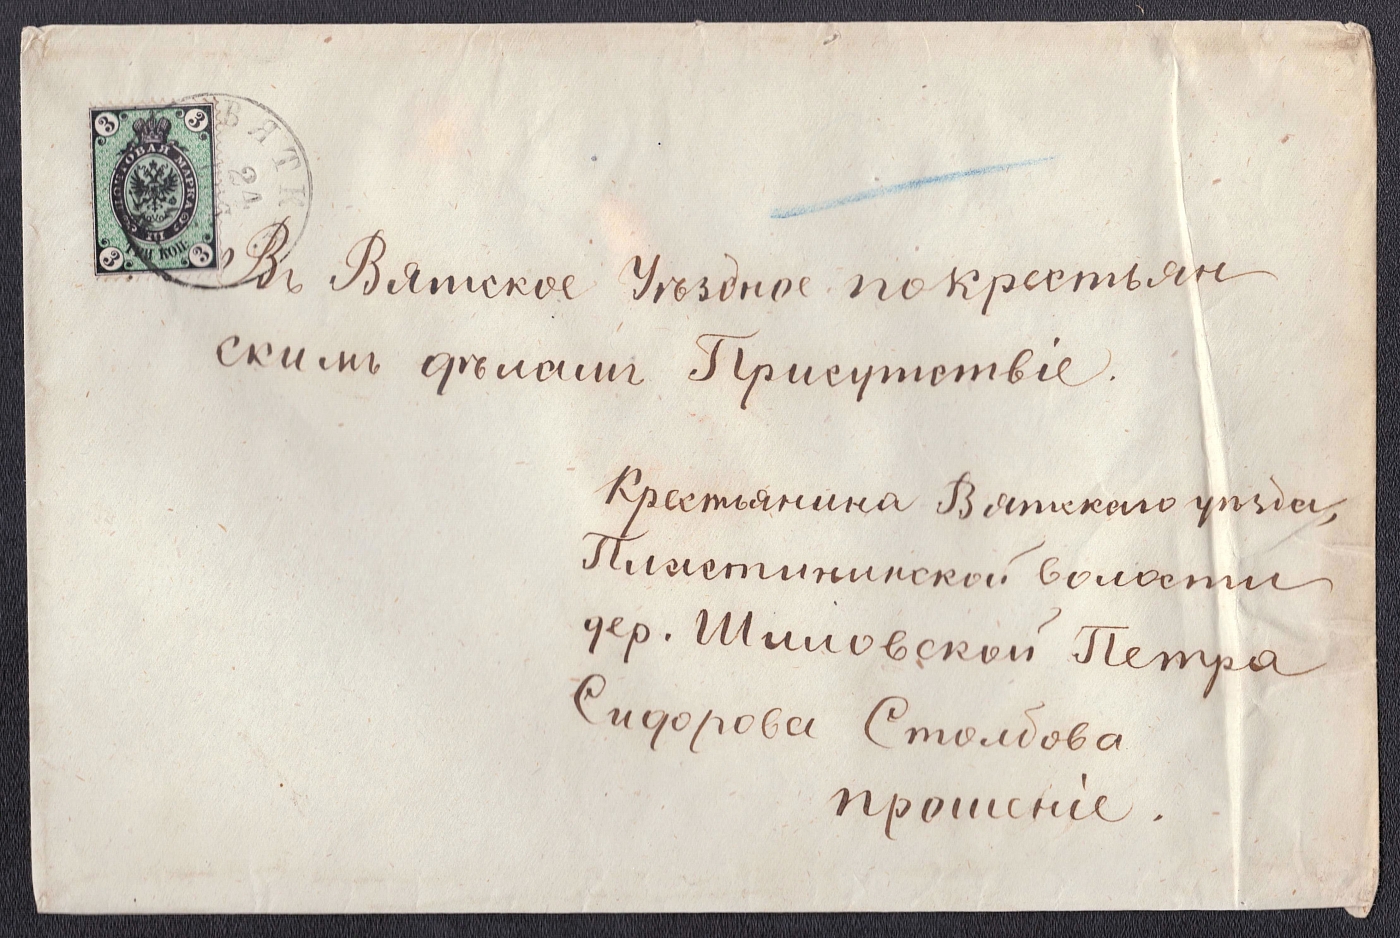 3 3
ПОЧТОВАЯ МАРКА
ТРИ КОП.
3 3
ВЯТК
24
Въ Вятское Уѣздное по крестьян
скимъ дѣламъ Присутствіе.
Крестьянина Вятскаго уѣзда,
Пластининской волости
дер. Шиловской Петра
Сидорова Столбова
прошеніе.